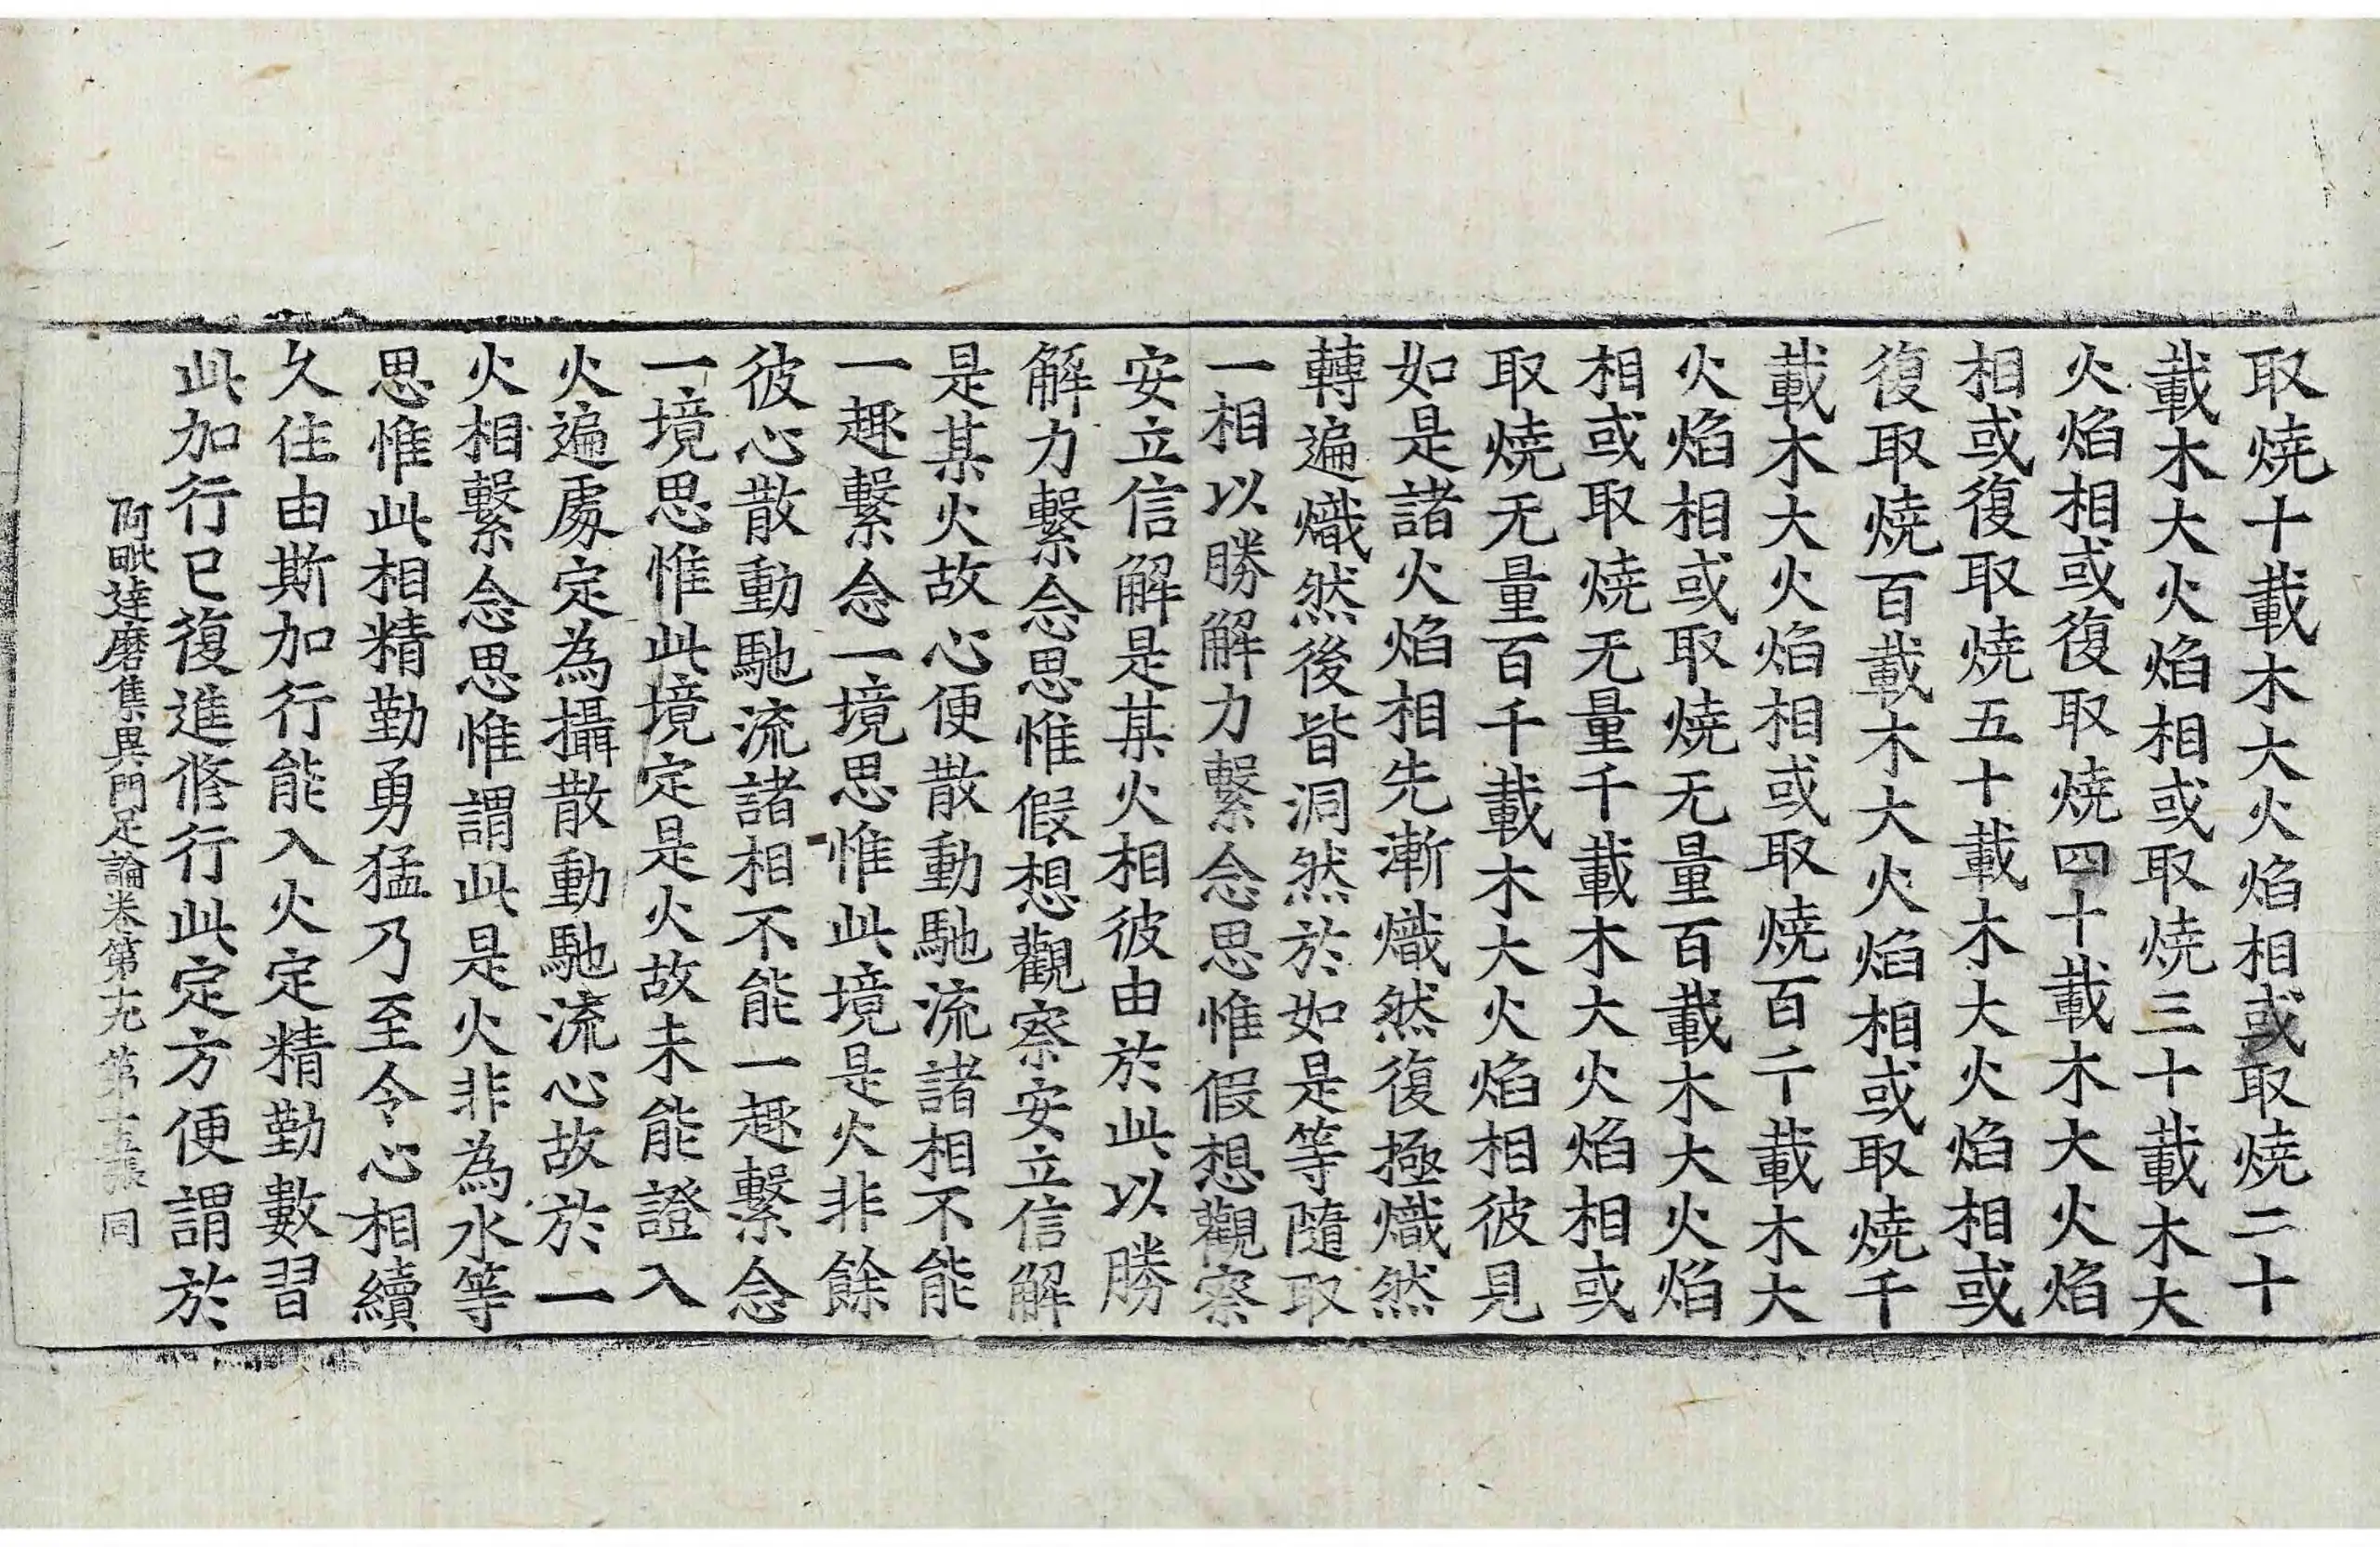 取燒十載木大火焰相或取燒二十
載木大火焰相或取燒三十載木大
火焰相或復取燒四十載木大火焰
相或復取燒五十載木大火焰相或
復取燒百載木大火焰相或取燒千
載木大火焰相或取燒百千載木大
火焰相或取燒无量百載木大火焰
相或取燒无量千載木大火焰相或
取燒无量百千載木大火焰相彼見
如是諸火焰相先漸熾然復極熾然
轉遍熾然後皆洞然於如是等隨取
一相以勝解力繫念思惟假想觀察
安立信解是某火相彼由於此以勝
解力繫念思惟假想觀察安立信解
是某火故心便散動馳流諸相不能
一趣繫念一境思惟此境是火非餘
彼心散動馳流諸相不能一趣繫念
一境思惟此境定是火故未能證入
火遍處定為攝散動馳流心故於一
火相繫念思惟謂此是火非為水等
思惟此相精勤勇猛乃至令心相續
久住由斯加行能入火定精勤數習
此加行已復進修行此定方便謂於
阿毗達磨集異門足論卷第十九 第十五張 同